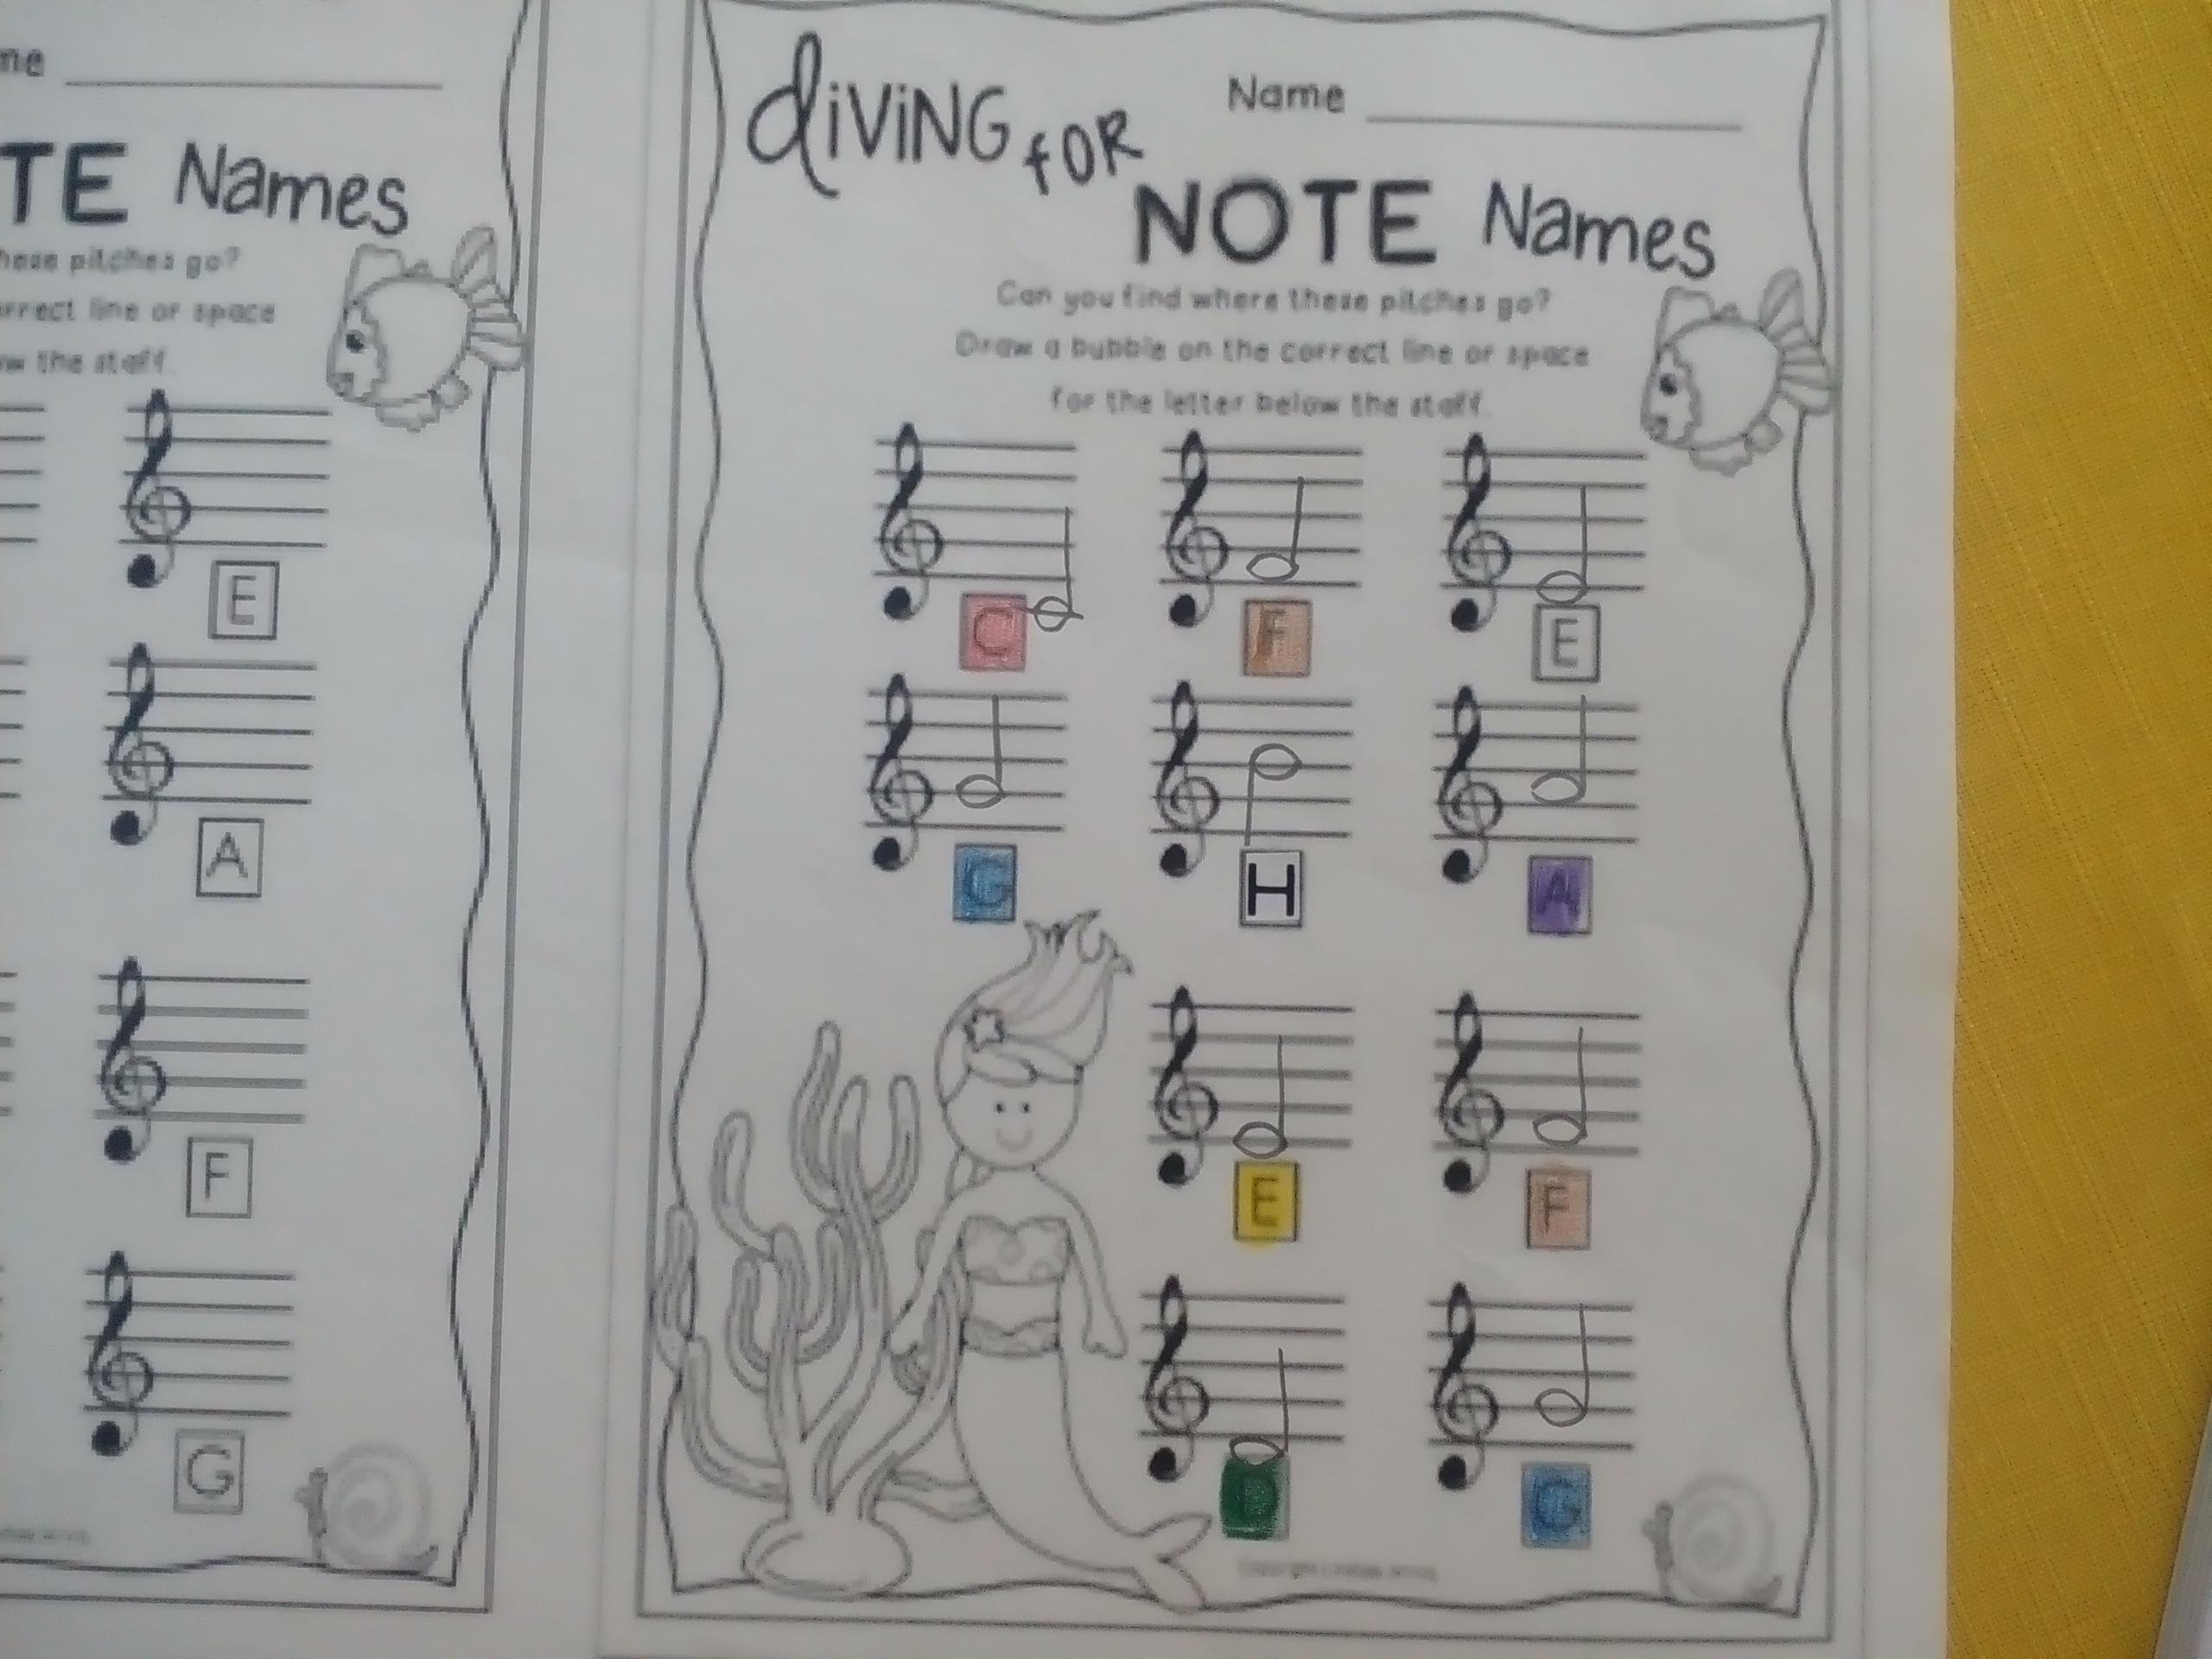 me
TE Names
hese pitches go?
rrect line or space
w the staff.
E
A
F
G
diving for
Name
NOTE Names
Can you find where these pitches go?
Draw a bubble on the correct line or space
for the letter below the staff.
C F E
G H A
E F
D G